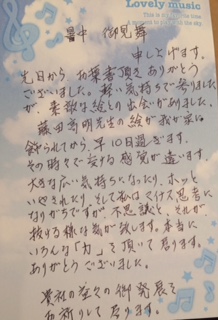 Lovely music
暑中 御見舞
申し上げます。
先日から お葉書頂き ありがとう
ございました。軽い気持ちで参りました
が、素敵な絵との出会いがありました。
藤田 先生の絵が我が家に
飾られてから、早10日過ぎます。
その時々で 感覚が違います。
大きな広い気持ちになったり、ホッと
いやされたり、そして私はマイナス思考に
なりがちですが、不思議と、それが
様な気が致します。本当に
いろんな「力」を頂いて居ります。
ありがとうございました。
貴社の益々の御発展を
お祈りして居ります。